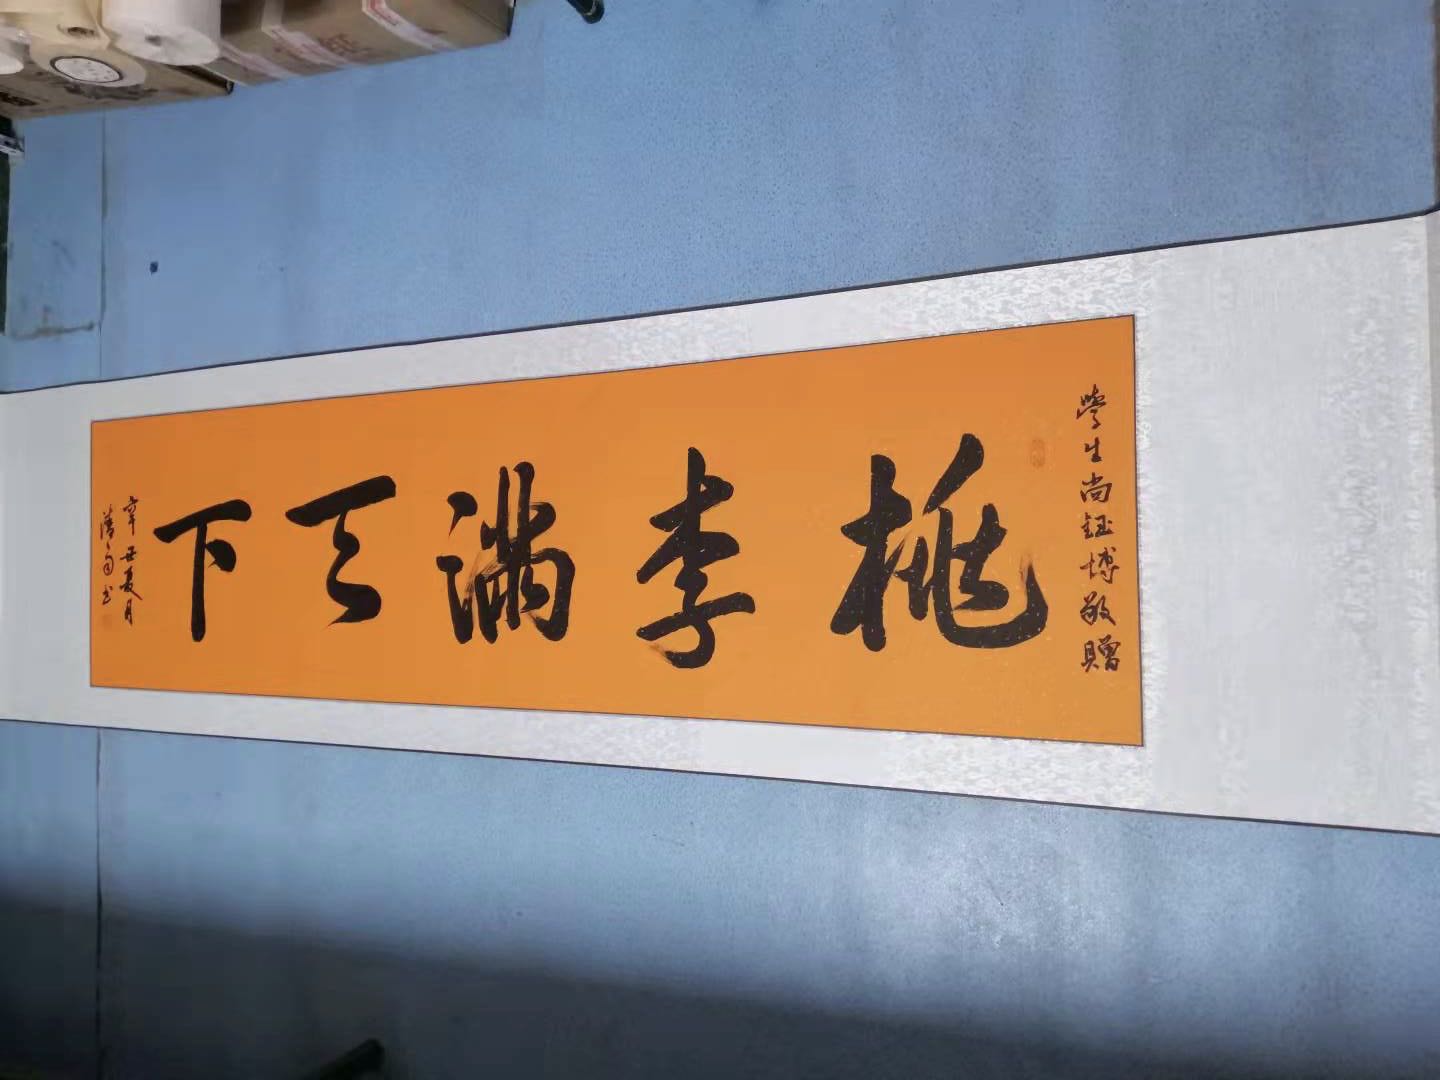 學生尚鈺博敬贈
桃李滿天下
辛丑夏月